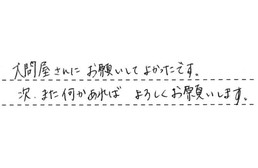 大問屋さんに お願いして よかったです。
次、また何かあれば よろしくお願いします。